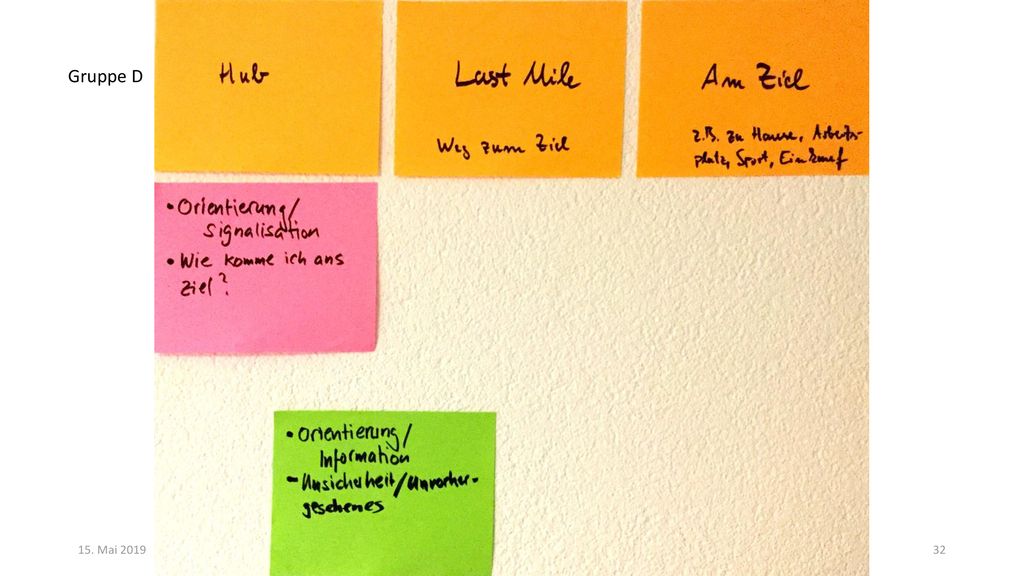 Gruppe D
Hub
Last Mile
Weg zum Ziel
Am Ziel
z.B. zu Hause, Arbeits-
platz, Sport, Einkauf
• Orientierung/
Signalisation
• Wie komme ich ans
Ziel?
• Orientierung/
Information
- Unsicherheit/Unvorher-
gesehenes
15. Mai 2019
32